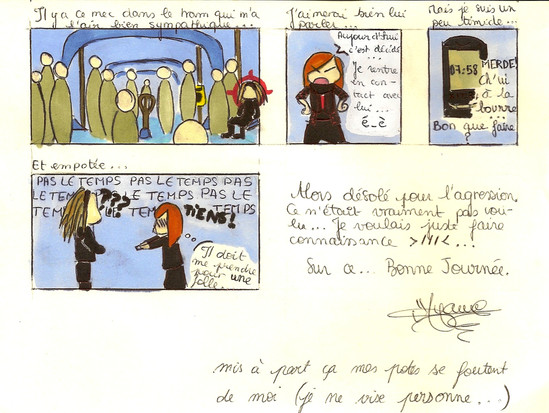 Il y a ce mec dans le tram qui m'a
l'air bien sympathique...
J'aimerai bien lui
parler...
Aujourd'hui
c'est décidé...
Je rentre
en con-
tact avec
lui...
é_è
Mais je suis un
peu timide...
07:58
MERDE!
Ch'ui
à la
bourre...
Bon que faire
?
Et empotée...
PAS LE TEMPS PAS LE TEMPS PAS
LE TEMPS PAS LE TEMPS PAS LE
TEMPS
TEMPS
???
TIENS!
Il doit
me prendre
pour une
folle.
Alors désolé pour l'agression.
Ce n'était vraiment pas vou-
lu... Je voulais juste faire
connaissance >.<...
Sur ce... Bonne Journée.
mis à part ça mes potes se foutent
de moi (je ne vise personne...)